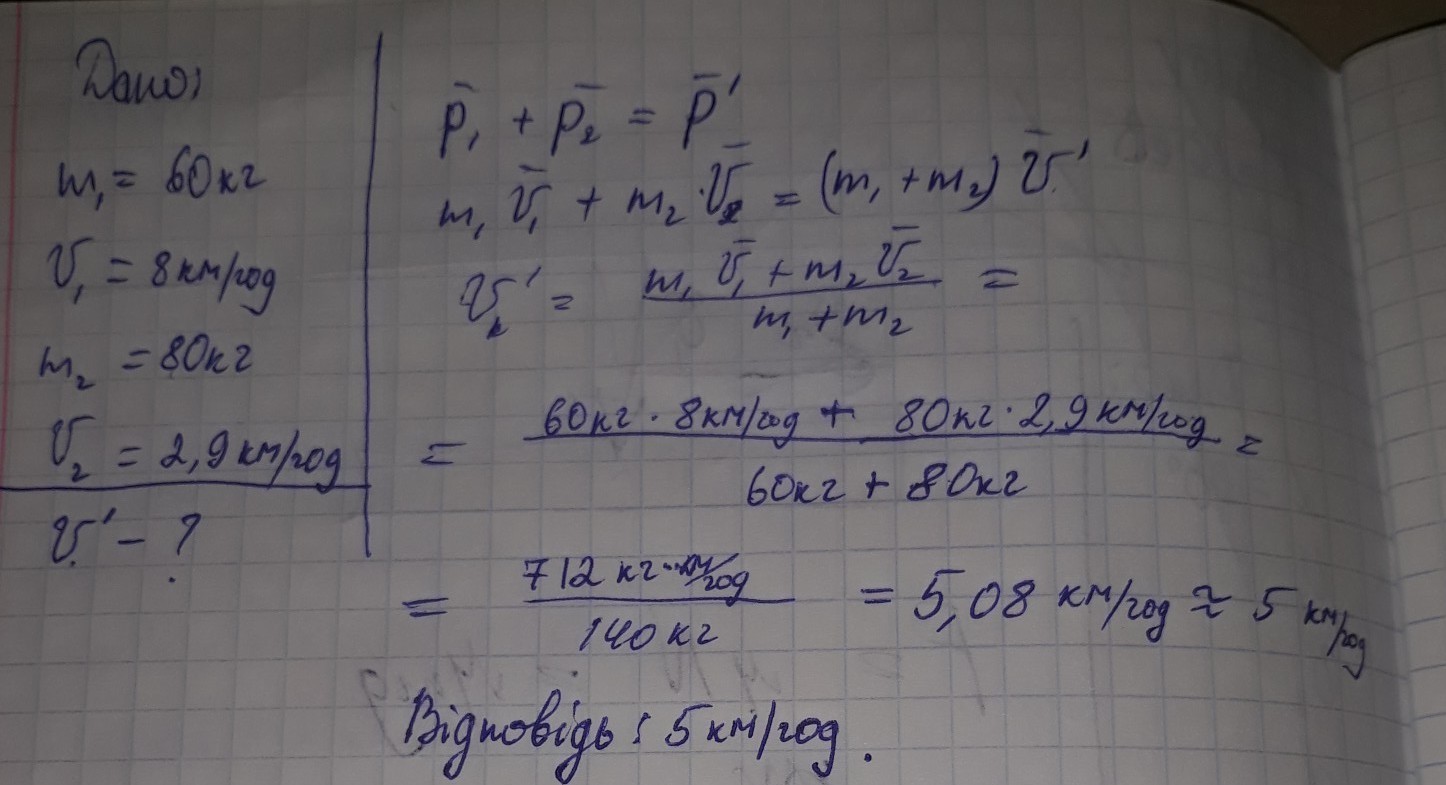 Дано:
m₁ = 60кг
V₁ = 8км/год
m₂ = 80кг
V₂ = 2,9км/год
V' - ?
p̄₁ + p̄₂ = p̄'
m₁ V̄₁ + m₂ · V̄₂ = (m₁ + m₂) V̄'
V' = (m₁ V̄₁ + m₂ V̄₂) / (m₁ + m₂) =
= (60кг · 8км/год + 80кг · 2,9км/год) / (60кг + 80кг) =
= (712 кг · км/год) / (140кг) = 5,08 км/год ≈ 5 км/год
Відповідь: 5км/год.